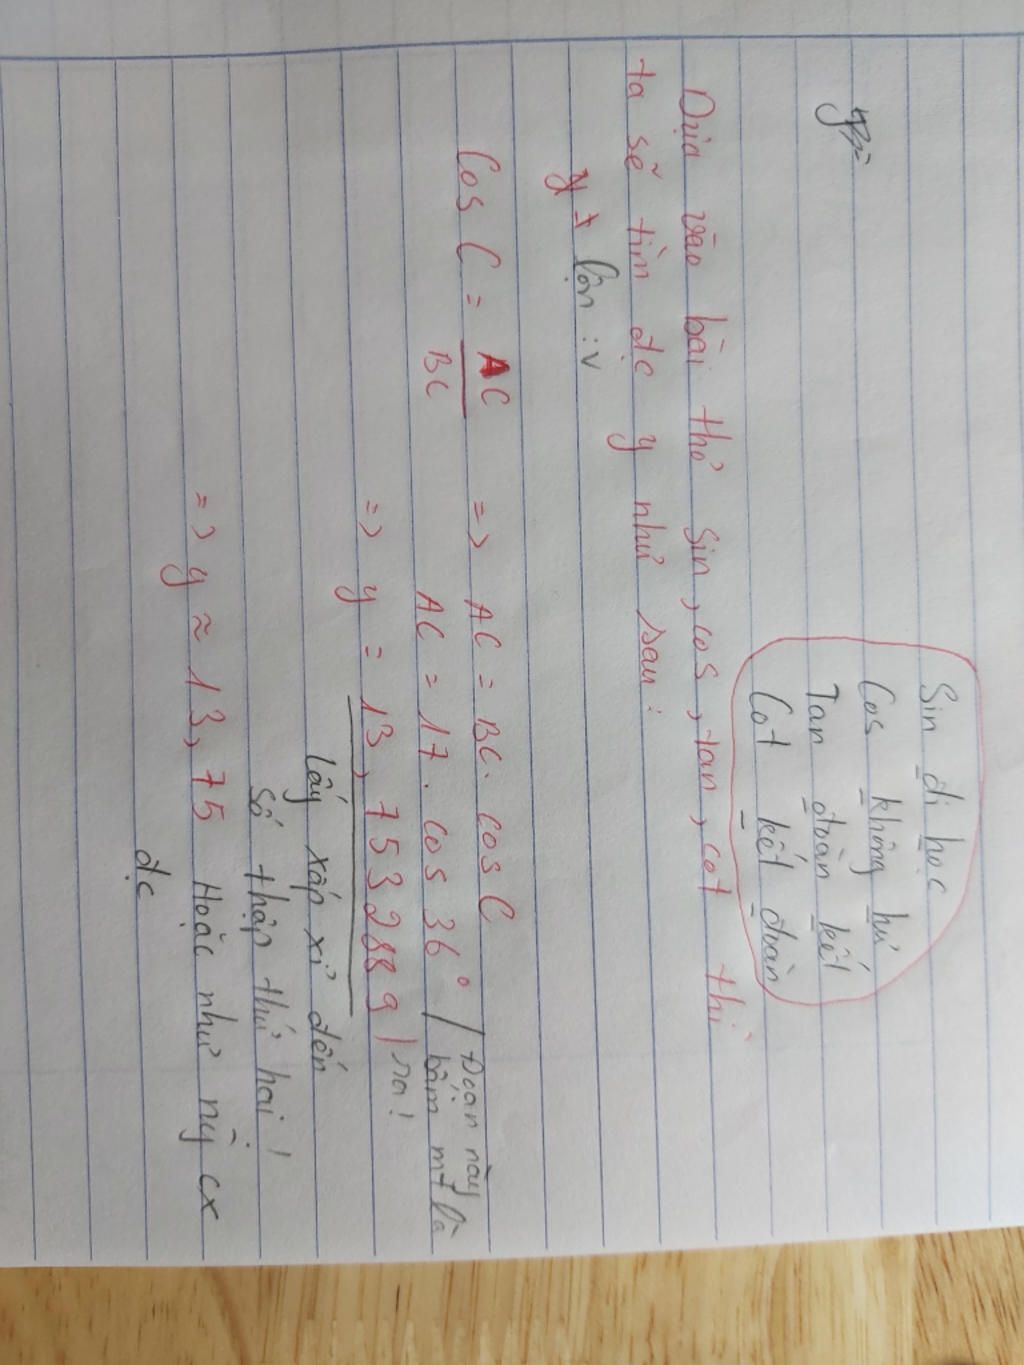 Sin đi học
Cos không hư
Tan đoàn kết
Cot kết đoàn
Dựa vào bài thơ sin, cos, tan, cot thì
ta sẽ tìm đc y như sau:
lộn :v
Cos C = AC / BC => AC = BC. cos C
AC = 17. cos 36° / Đoạn này bấm mt là
=> y = 13,7532889 / ra!
lấy xấp xỉ đến
số thập thứ hai!
=> y ≈ 13,75 Hoặc như nỳ cx
đc